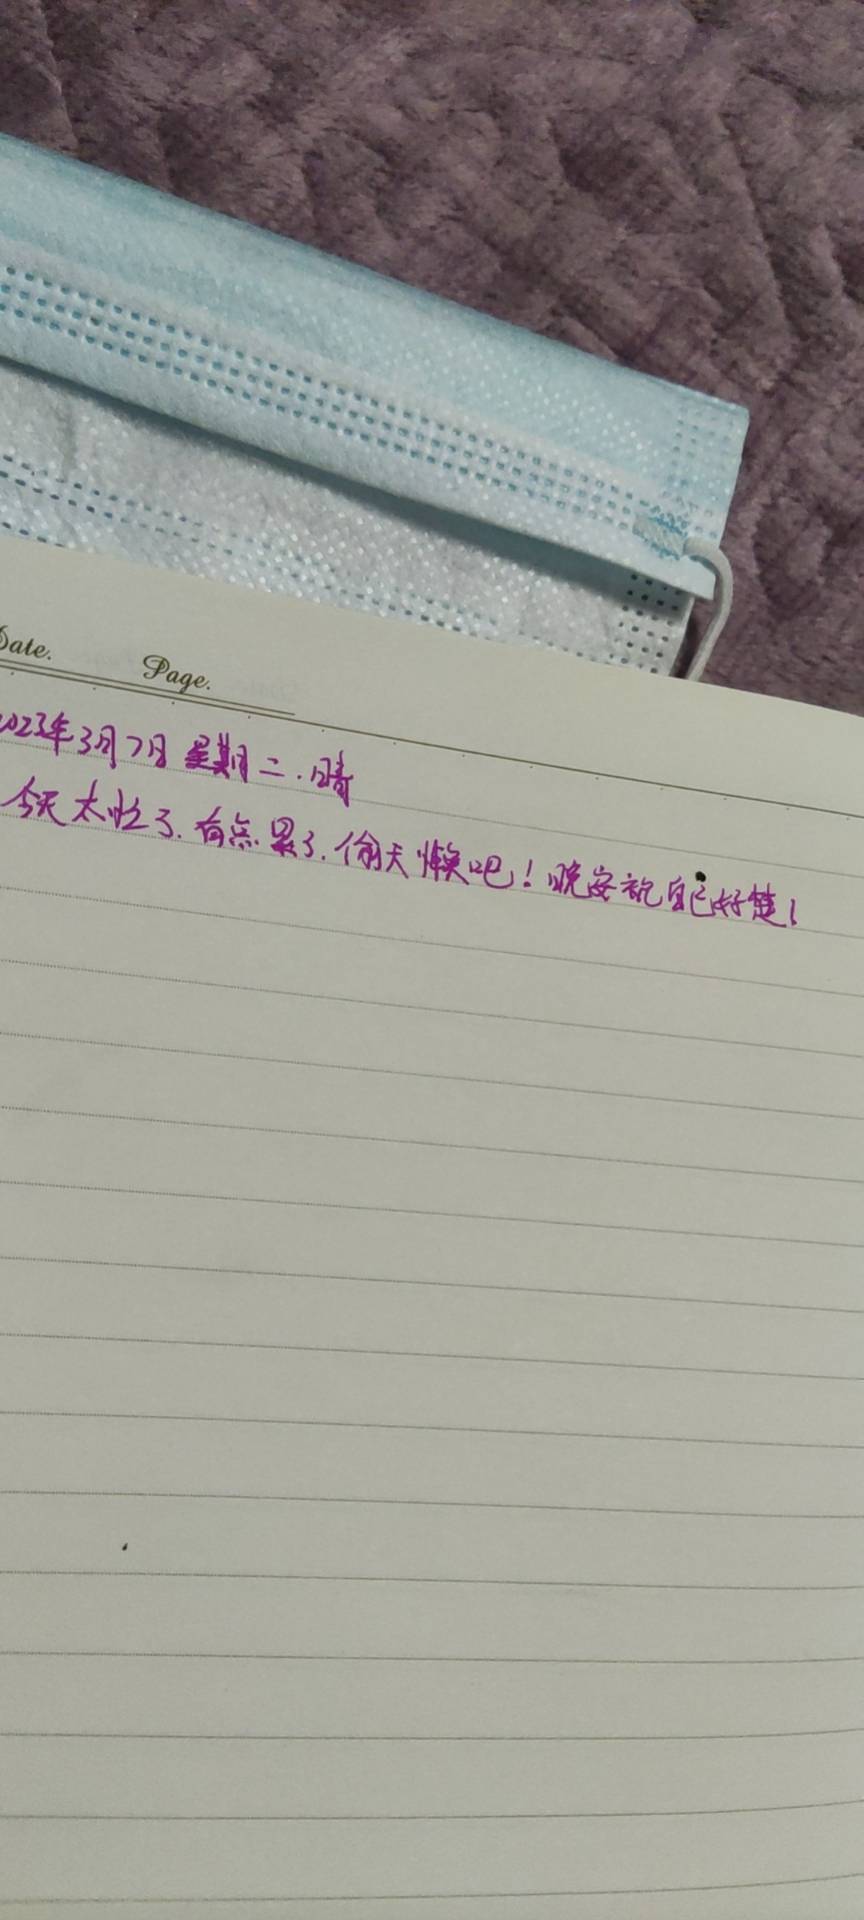 Date.
Page.
2023年3月7日 星期二.晴
今天太忙了.有点累了.偷天懒吧!晚安祝自己好梦!